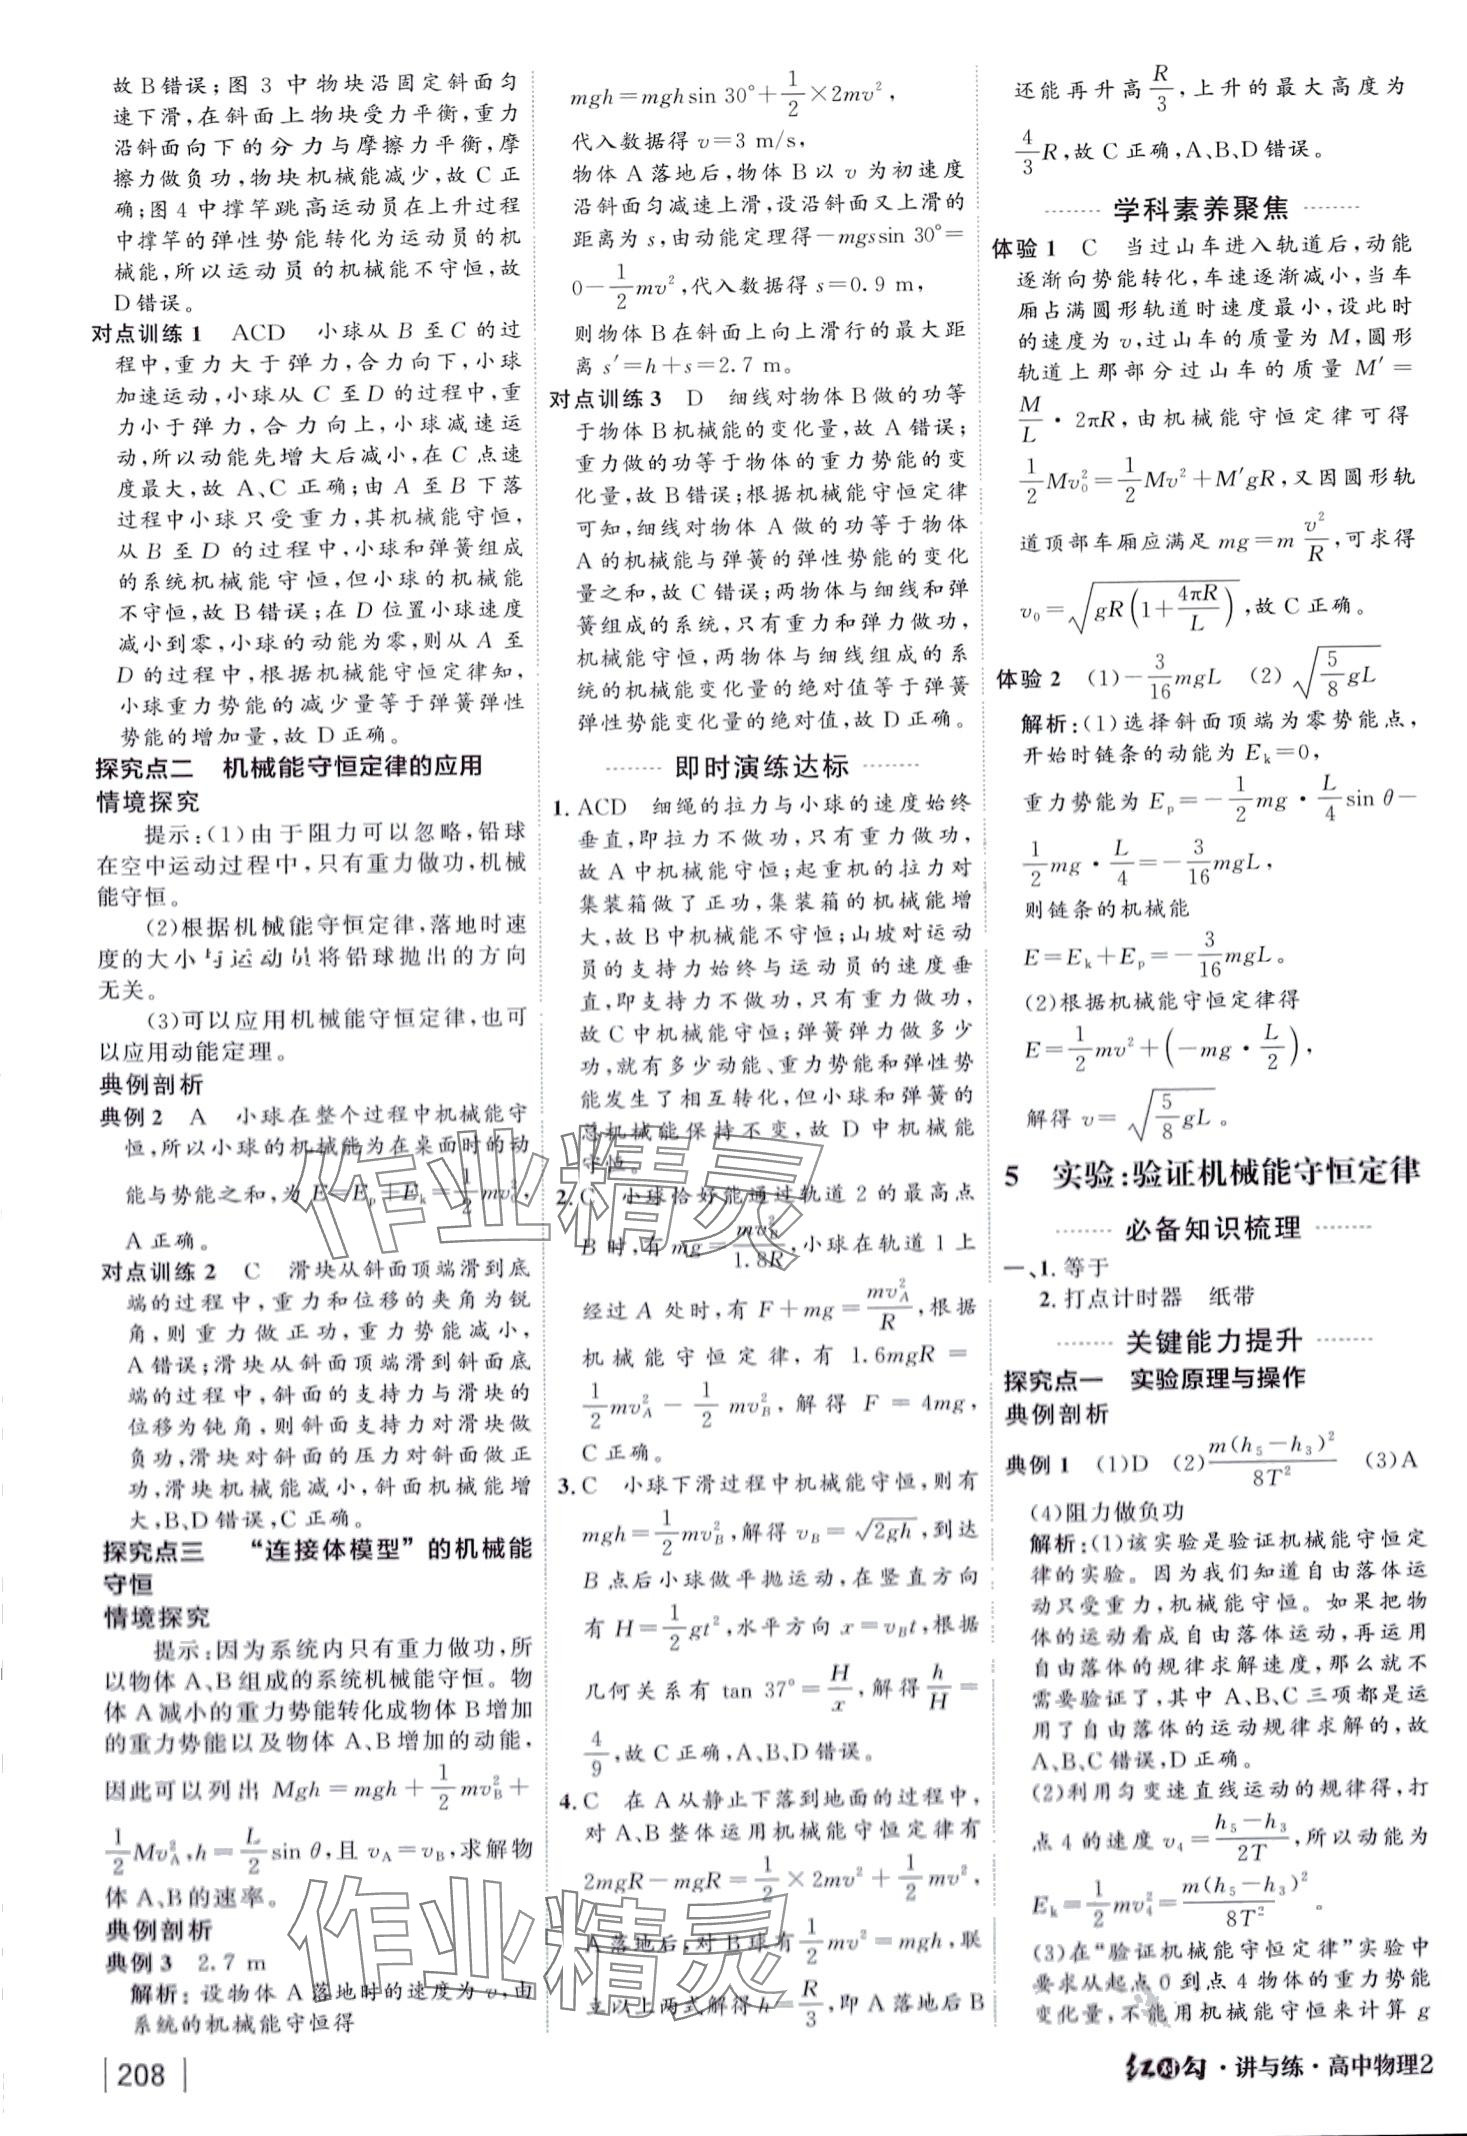 故B错误;图 3 中物块沿固定斜面匀
速下滑,在斜面上物块受力平衡,重力
沿斜面向下的分力与摩擦力平衡,摩
擦力做负功,物块机械能减少,故C正
确;图 4 中撑竿跳高运动员在上升过程
中撑竿的弹性势能转化为运动员的机
械能,所以运动员的机械能不守恒,故
D错误。
对点训练 1 ACD 小球从 B 至 C 的过
程中,重力大于弹力,合力向下,小球
加速运动,小球从 C 至 D 的过程中,重
力小于弹力,合力向上,小球减速运
动,所以动能先增大后减小,在 C 点速
度最大,故 A、C 正确;由 A 至 B 下落
过程中小球只受重力,其机械能守恒,
从 B 至 D 的过程中,小球和弹簧组成
的系统机械能守恒,但小球的机械能
不守恒,故 B错误;在 D 位置小球速度
减小到零,小球的动能为零,则从 A 至
D 的过程中,根据机械能守恒定律知,
小球重力势能的减少量等于弹簧弹性
势能的增加量,故 D正确。
探究点二 机械能守恒定律的应用
情境探究
提示:(1)由于阻力可以忽略,铅球
在空中运动过程中,只有重力做功,机械
能守恒。
(2)根据机械能守恒定律,落地时速
度的大小与运动员将铅球抛出的方向
无关。
(3)可以应用机械能守恒定律,也可
以应用动能定理。
典例剖析
典例 2 A 小球在整个过程中机械能守
恒,所以小球的机械能为在桌面时的动
能与势能之和,为 E=Eₚ+Eₖ=1/2mv₀²,
A 正确。
对点训练 2 C 滑块从斜面顶端滑到底
端的过程中,重力和位移的夹角为锐
角,则重力做正功,重力势能减小,
A错误;滑块从斜面顶端滑到斜面底
端的过程中,斜面的支持力与滑块的
位移为钝角,则斜面支持力对滑块做
负功,滑块对斜面的压力对斜面做正
功,滑块机械能减小,斜面机械能增
大,B、D错误,C正确。
探究点三 “连接体模型”的机械能
守恒
情境探究
提示:因为系统内只有重力做功,所
以物体A、B组成的系统机械能守恒。物
体A减小的重力势能转化成物体B增加
的重力势能以及物体 A、B增加的动能,
因此可以列出 Mgh=mgh+1/2mv_B²+
1/2Mv_A²,h=L/2 sin θ,且 v_A=v_B,求解物
体A、B的速率。
典例剖析
典例 3 2.7 m
解析:设物体 A 落地时的速度为 v,由
系统的机械能守恒得
mgh=mghsin 30°+1/2×2mv²,
代入数据得 v=3 m/s,
物体 A 落地后,物体 B 以 v 为初速度
沿斜面匀减速上滑,设沿斜面又上滑的
距离为 s,由动能定理得-mgssin 30°=
0-1/2mv²,代入数据得 s=0.9 m,
则物体 B在斜面上向上滑行的最大距
离 s′=h+s=2.7 m。
对点训练 3 D 细线对物体 B做的功等
于物体 B机械能的变化量,故 A 错误;
重力做的功等于物体的重力势能的变
化量,故 B错误;根据机械能守恒定律
可知,细线对物体 A 做的功等于物体
A 的机械能与弹簧的弹性势能的变化
量之和,故 C 错误;两物体与细线和弹
簧组成的系统,只有重力和弹力做功,
机械能守恒,两物体与细线组成的系
统的机械能变化量的绝对值等于弹簧
弹性势能变化量的绝对值,故 D正确。
即时演练达标
1. ACD 细绳的拉力与小球的速度始终
垂直,即拉力不做功,只有重力做功,
故 A 中机械能守恒;起重机的拉力对
集装箱做了正功,集装箱的机械能增
大,故 B中机械能不守恒;山坡对运动
员的支持力始终与运动员的速度垂
直,即支持力不做功,只有重力做功,
故 C中机械能守恒;弹簧弹力做多少
功,就有多少动能、重力势能和弹性势
能发生了相互转化,但小球和弹簧的
总机械能保持不变,故 D 中机械能
守恒。
2. C 小球恰好能通过轨道 2 的最高点
B 时,有 mg=mv_B²/1.8R,小球在轨道 1 上
经过 A 处时,有 F+mg=mv_A²/R,根据
机械能守恒定律,有 1.6mgR=
1/2mv_A²-1/2mv_B²,解得 F=4mg,
C正确。
3. C 小球下滑过程中机械能守恒,则有
mgh=1/2mv_B²,解得 v_B=√2gh,到达
B 点后小球做平抛运动,在竖直方向
有 H=1/2gt²,水平方向 x=v_Bt,根据
几何关系有 tan 37°=H/x,解得 h/H=
4/9,故 C正确,A、B、D错误。
4. C 在 A从静止下落到地面的过程中,
对 A、B整体运用机械能守恒定律有
2mgR-mgR=1/2×2mv²+1/2mv²,
A落地后,对 B球有1/2mv²=mgh,联
立以上两式解得 h=R/3,即 A 落地后 B
还能再升高R/3,上升的最大高度为
4/3R,故 C正确,A、B、D错误。
学科素养聚焦
体验 1 C 当过山车进入轨道后,动能
逐渐向势能转化,车速逐渐减小,当车
厢占满圆形轨道时速度最小,设此时
的速度为 v,过山车的质量为 M,圆形
轨道上那部分过山车的质量 M′=
M/L·2πR,由机械能守恒定律可得
1/2Mv₀²=1/2Mv²+M′gR,又因圆形轨
道顶部车厢应满足 mg=m v²/R,可求得
v₀=√gR(1+4πR/L),故 C正确。
体验 2 (1)-3/16mgL (2)√5/8gL
解析:(1)选择斜面顶端为零势能点,
开始时链条的动能为 Eₖ=0,
重力势能为 Eₚ=-1/2mg·L/4sin θ-
1/2mg·L/4=-3/16mgL,
则链条的机械能
E=Eₖ+Eₚ=-3/16mgL。
(2)根据机械能守恒定律得
E=1/2mv²+(-mg·L/2),
解得 v=√5/8gL。
5 实验:验证机械能守恒定律
必备知识梳理
一、1. 等于
2. 打点计时器 纸带
关键能力提升
探究点一 实验原理与操作
典例剖析
典例 1 (1)D (2)m(h₅-h₃)²/8T² (3)A
(4)阻力做负功
解析:(1)该实验是验证机械能守恒定
律的实验。因为我们知道自由落体运
动只受重力,机械能守恒。如果把物
体的运动看成自由落体运动,再运用
自由落体的规律求解速度,那么就不
需要验证了,其中 A、B、C 三项都是运
用了自由落体的运动规律求解的,故
A、B、C错误,D正确。
(2)利用匀变速直线运动的规律得,打
点 4 的速度 v₄=h₅-h₃/2T,所以动能为
Eₖ=1/2mv₄²=m(h₅-h₃)²/8T²。
(3)在“验证机械能守恒定律”实验中
要求从起点 0 到点 4 物体的重力势能
变化量,不能用机械能守恒来计算 g
208
红对勾·讲与练·高中物理2
作业精灵
作业精灵